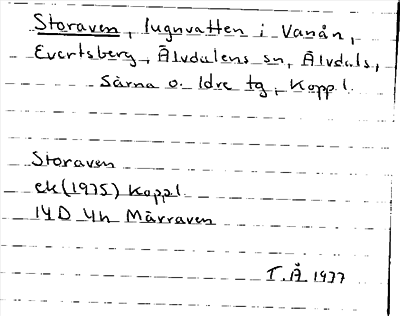 Storaven, lugnvatten i Vanån,
Evertsberg, Älvdalens sn, Älvdals,
Särna o. Idre tg, Kopp l.
Storaven
ek (1975) Koppl.
14D 4h Mårraven
T.Å 1977